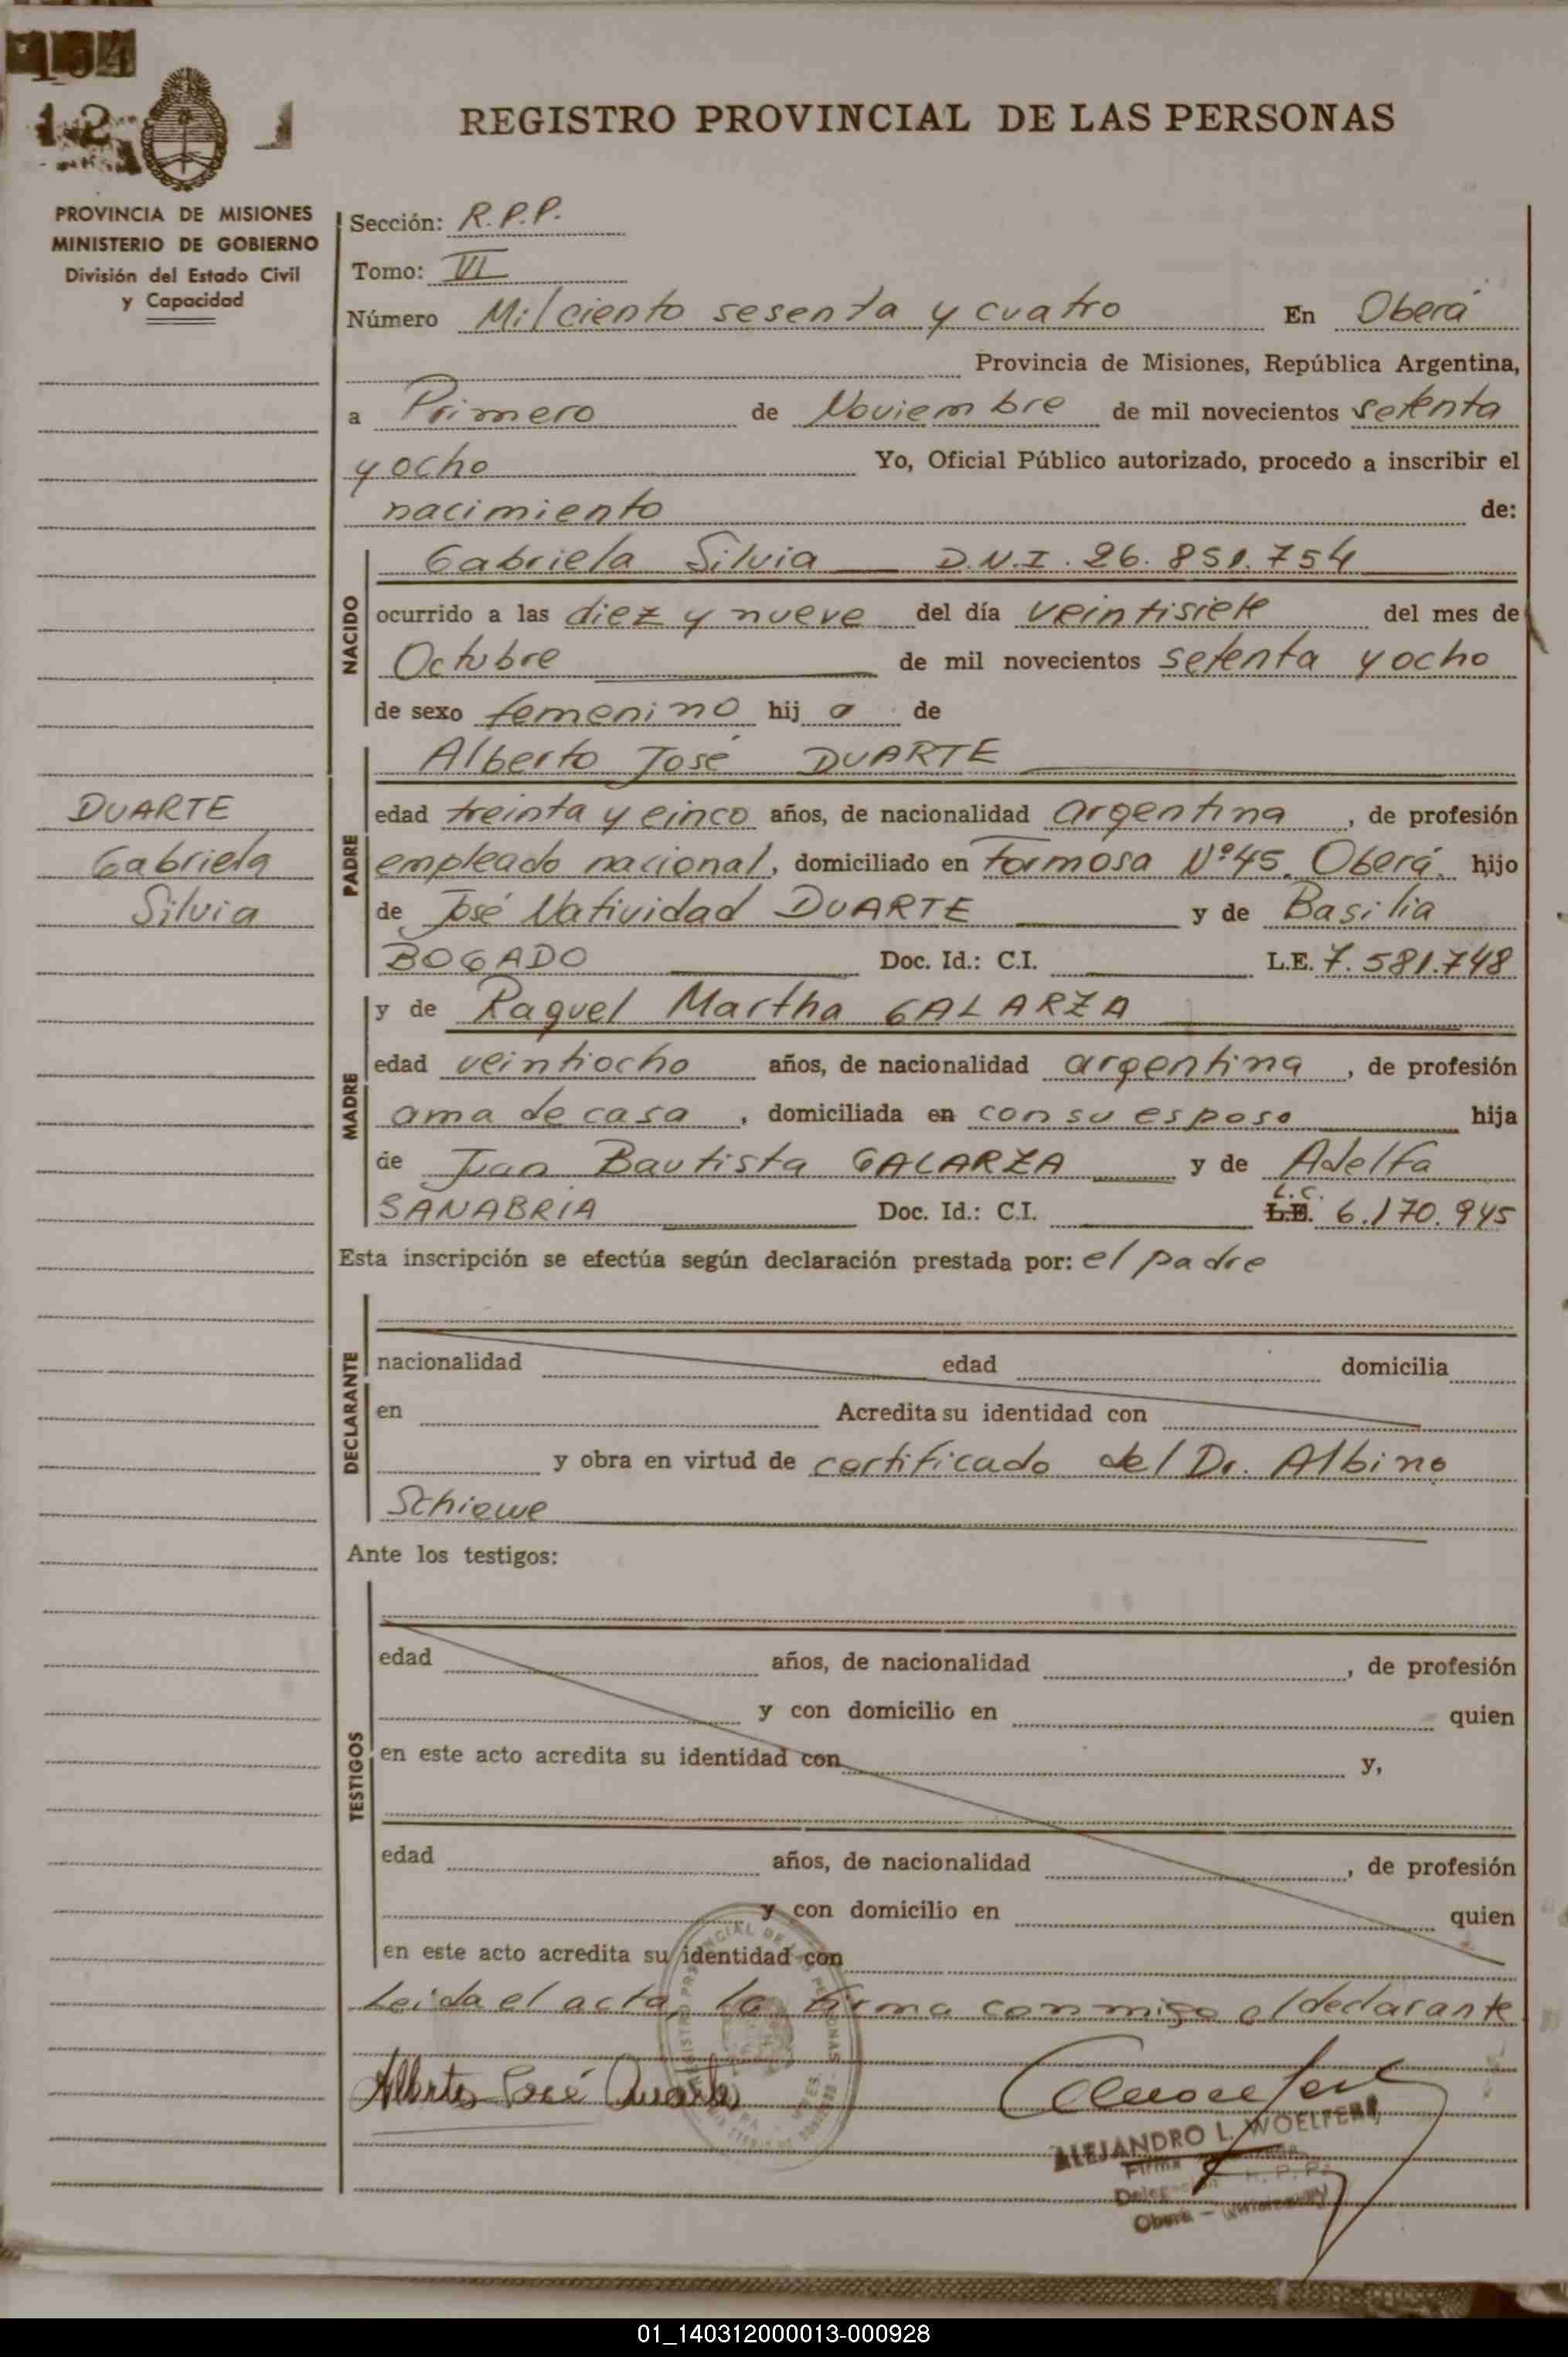 REGISTRO PROVINCIAL DE LAS PERSONAS
PROVINCIA DE MISIONES
MINISTERIO DE GOBIERNO
División del Estado Civil
y Capacidad
Sección: R.P.P.
Tomo: VI
Número Mil ciento sesenta y cuatro En Oberá
Provincia de Misiones, República Argentina,
a Primero de Noviembre de mil novecientos setenta
y ocho Yo, Oficial Público autorizado, procedo a inscribir el
nacimiento de:
NACIDO
Gabriela Silvia D.N.I. 26.851.754
ocurrido a las diez y nueve del día veintisiete del mes de
Octubre de mil novecientos setenta y ocho
de sexo femenino hij a de
PADRE
Alberto José DUARTE
DUARTE
Gabriela
Silvia
edad treinta y cinco años, de nacionalidad argentina, de profesión
empleado nacional, domiciliado en Formosa Nº 45. Oberá. hijo
de José Natividad DUARTE y de Basilia
BOGADO Doc. Id.: C.I. L.E. 7.581.748
MADRE
y de Raquel Martha GALARZA
edad veintiocho años, de nacionalidad argentina, de profesión
ama de casa, domiciliada en con su esposo hija
de Juan Bautista GALARZA y de Adelfa
SANABRIA Doc. Id.: C.I. L.E. L.C. 6.170.945
Esta inscripción se efectúa según declaración prestada por: el padre
DECLARANTE
nacionalidad edad domicilia
en Acredita su identidad con
y obra en virtud de certificado del Dr. Albino
Schiewe
Ante los testigos:
TESTIGOS
edad años, de nacionalidad , de profesión
y con domicilio en quien
en este acto acredita su identidad con y,
edad años, de nacionalidad , de profesión
y con domicilio en quien
en este acto acredita su identidad con
Leida el acta, la firma conmigo el declarante
Alberto José Duarte
ALEJANDRO L. WOELFERT
Firma
Oberá - (Misiones)
01_140312000013-000928